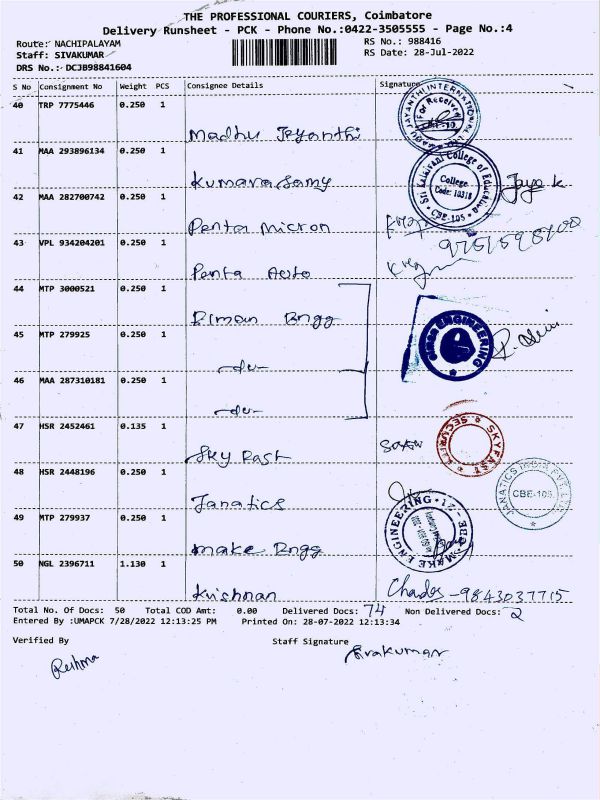 THE PROFESSIONAL COURIERS, Coimbatore
Delivery Runsheet - PCK - Phone No.:0422-3505555 - Page No.:4
Route: NACHIPALAYAM RS No.: 988416
Staff: SIVAKUMAR RS Date: 28-Jul-2022
DRS No.: DCJB98841604
S No Consignment No Weight PCS Consignee Details Signature
40 TRP 7775446 0.250 1
Madhu Jeyanthi
41 MAA 293896134 0.250 1
Kumarasamy
42 MAA 282700742 0.250 1
Penta Micron
43 VPL 934204201 0.250 1
Penta Auto
44 MTP 3000521 0.250 1
Elman Engg
45 MTP 279925 0.250 1
-do-
46 MAA 287310181 0.250 1
-do-
47 HSR 2452461 0.135 1
Sky Fast
48 HSR 2448196 0.250 1
Janatics
49 MTP 279937 0.250 1
Make Engg
50 NGL 2396711 1.130 1
Krishnan
MADHU JAYANTHI INTERNATIONAL
For Received
College of Education
College
Code: 10318
CBE-105
ENGINEERING
SKYFAST
SECURITY
JANATICS INDIA PVT. LTD
CBE-105.
MAKE ENGINEERING
CBE - 21
9843037715
Total No. Of Docs: 50 Total COD Amt: 0.00 Delivered Docs: 74 Non Delivered Docs: 2
Entered By :UMAPCK 7/28/2022 12:13:25 PM Printed On: 28-07-2022 12:13:34
Verified By Staff Signature
Reshma Sivakumar